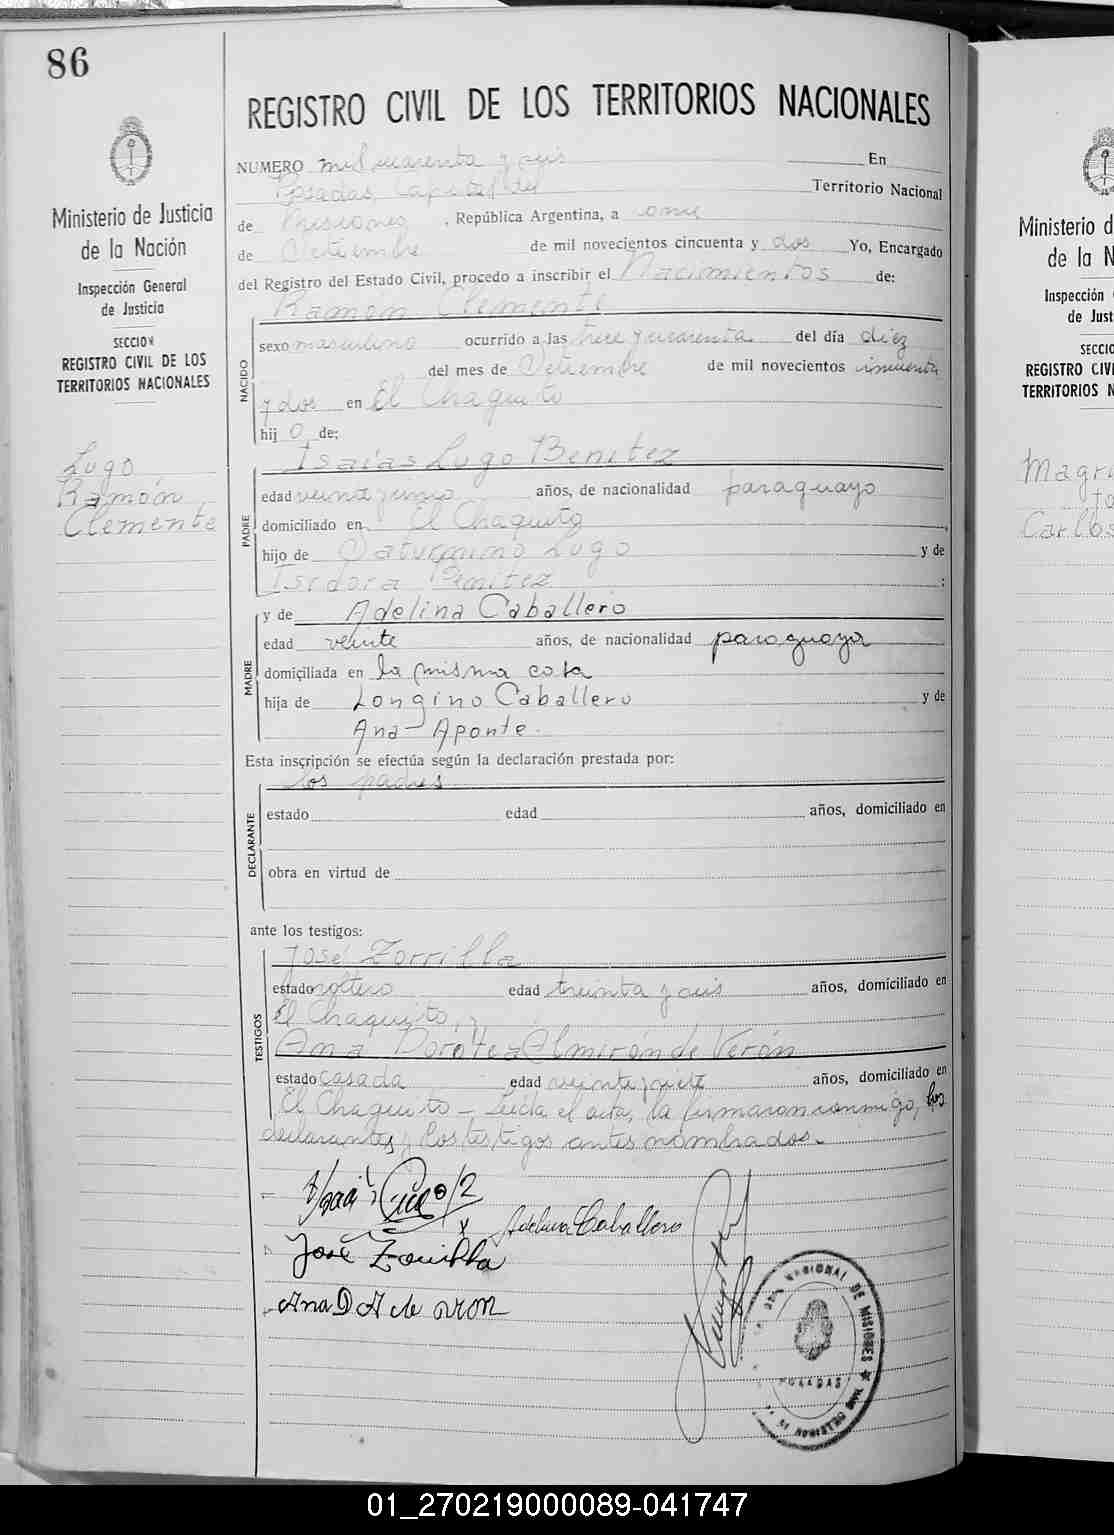 86
REGISTRO CIVIL DE LOS TERRITORIOS NACIONALES
Ministerio de Justicia
de la Nación
Inspección General
de Justicia
SECCION
REGISTRO CIVIL DE LOS
TERRITORIOS NACIONALES
Lugo
Ramón
Clemente
NUMERO mil cuarenta y seis En
Posadas, Capital del Territorio Nacional
de Misiones, República Argentina, a once
de Setiembre de mil novecientos cincuenta y dos Yo, Encargado
del Registro del Estado Civil, procedo a inscribir el Nacimientos de:
Ramón Clemente
NACIDO
sexo masculino ocurrido a las trece y cuarenta del día diez
del mes de Setiembre de mil novecientos cincuenta
y dos en El Chaquito
hij o de:
Isaías Lugo Benitez
PADRE
edad años, de nacionalidad paraguayo
domiciliado en El Chaquito
hijo de Saturnino Lugo y de
Isidora Benitez :
y de Adelina Caballero
MADRE
edad veinte años, de nacionalidad paraguaya
domiciliada en la misma casa
hija de Longino Caballero y de
Ana Aponte.
Esta inscripción se efectúa según la declaración prestada por:
los padres
DECLARANTE
estado edad años, domiciliado en
obra en virtud de
ante los testigos:
José Zorrilla
TESTIGOS
estado soltero edad treinta y seis años, domiciliado en
El Chaquito, y
Ana Dorotea Almirón de Verón
estado casada edad veinte y siete años, domiciliado en
El Chaquito - Leida el acta, la firmaron conmigo, los
declarantes y los testigos antes nombrados.
Adelina Caballero
José Zorrilla
Ana D A de
NACIONAL DE MISIONES
POSADAS
Ministerio d
de la N
Inspección
de Just
SECCIO
REGISTRO CIVI
TERRITORIOS N
Carlos
01_270219000089-041747